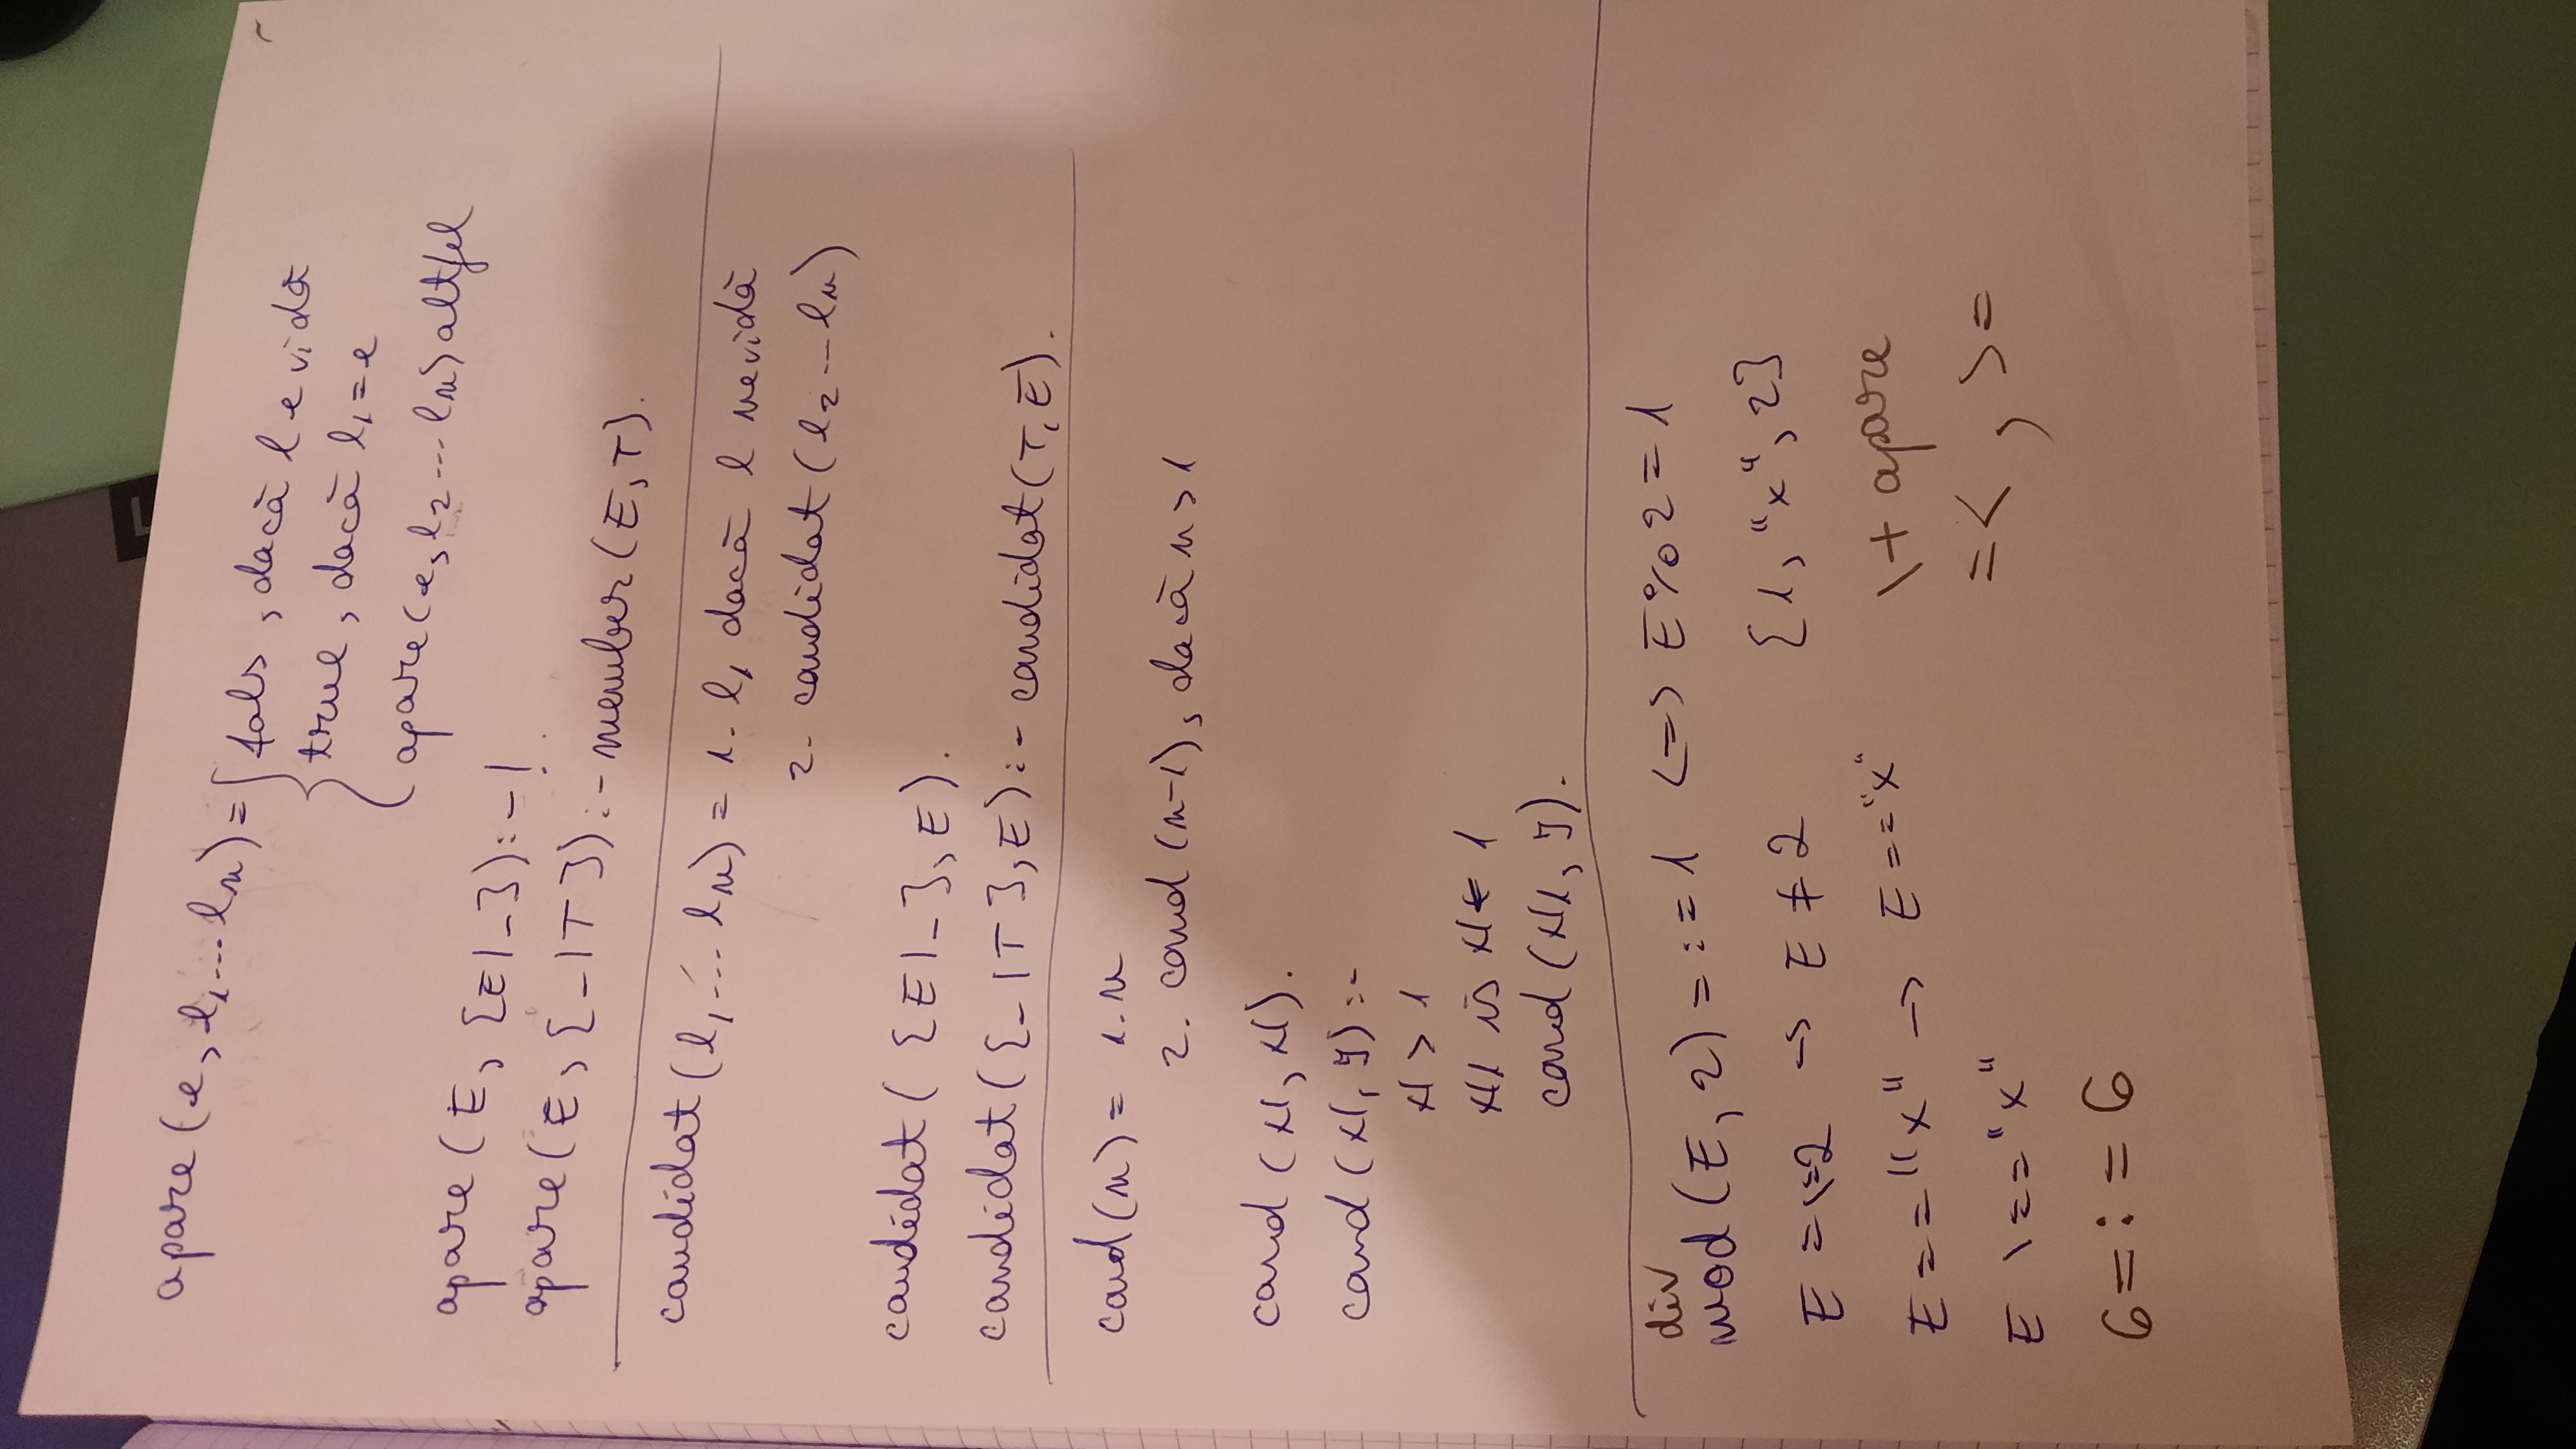 apare(e, l1...ln) = { fals, dacă l e vidă
true, dacă l1=e
apare(e, l2...ln) altfel
apare(E, [E|_]):-!.
apare(E, [_|T]):-member(E,T).
candidat(l1...ln) = 1. l1 dacă l nevidă
2. candidat(l2...ln)
candidat([E|_],E).
candidat([_|T],E):-candidat(T,E).
cand(n) = 1. n
2. cand(n-1), dacă n>1
cand(N,N).
cand(N,I):-
N>1
N1 is N-1
cand(N1,I).
div
mod(E,2)=:=1 <=> E%2=1
E=\=2 -> E≠2 [1,"x",2]
E=="x" -> E=="x" \+ apare
E \=="x" =<, >=
6=:=6